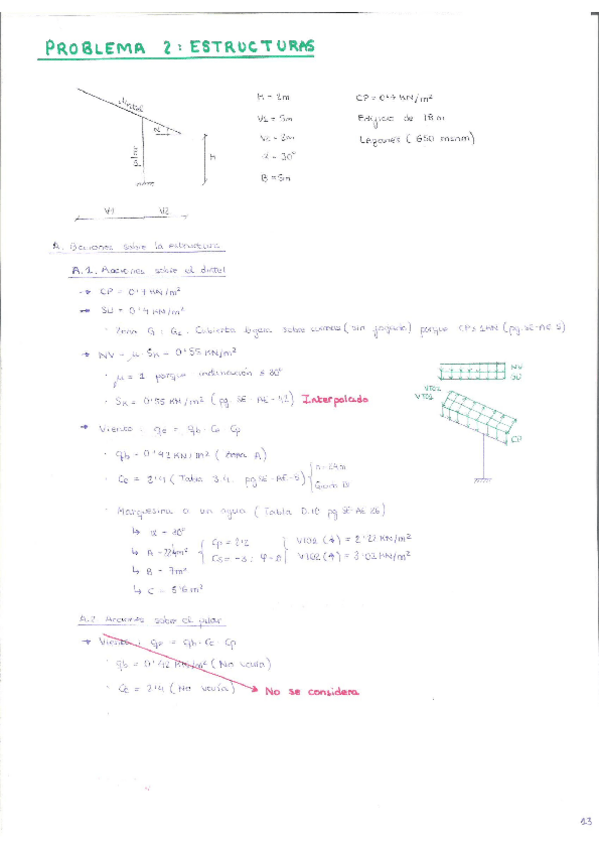 PROBLEMA 2: ESTRUCTURAS
dintel
α
pilar
h
V1 V2
H = 2m
V1 = 5m
V2 = 3m
α = 30°
B = 5m
CP = 0'4 KN/m²
Edificio de 18m
Leganés (650 msnm)
A. Acciones sobre la estructura
A.1. Acciones sobre el dintel
→ CP = 0'4 KN/m²
→ SU = 0'4 KN/m²
· Zona G: G1. Cubierta ligera sobre correas (sin forjado) porque CP≤1KN (pg SE-AE 5)
→ NV = μ · Sk = 0'55 KN/m²
· μ = 1 porque inclinación ≤ 30°
· Sk = 0'55 KN/m² (pg. SE-AE-42) Interpolado
NV
SU
VTO2
VTO1
CP
→ Viento: qe = qb · Ce · Cp
· qb = 0'42 KN/m² (Zona A)
· Ce = 2'4 (Tabla 3.4. pg SE-AE-8)
· Marquesina a un agua (Tabla D.10 pg SE-AE
↳ α = 30°
↳ B = 7m²
↳ C = 5'6m²
Cp = 2'2
A.2. Acciones sobre el pilar
→ Viento: qe = qb · Ce · Cp
· qb = 0'42 KN/m² (No varía)
· Ce = 2'4 (No varía)
No se considera
13